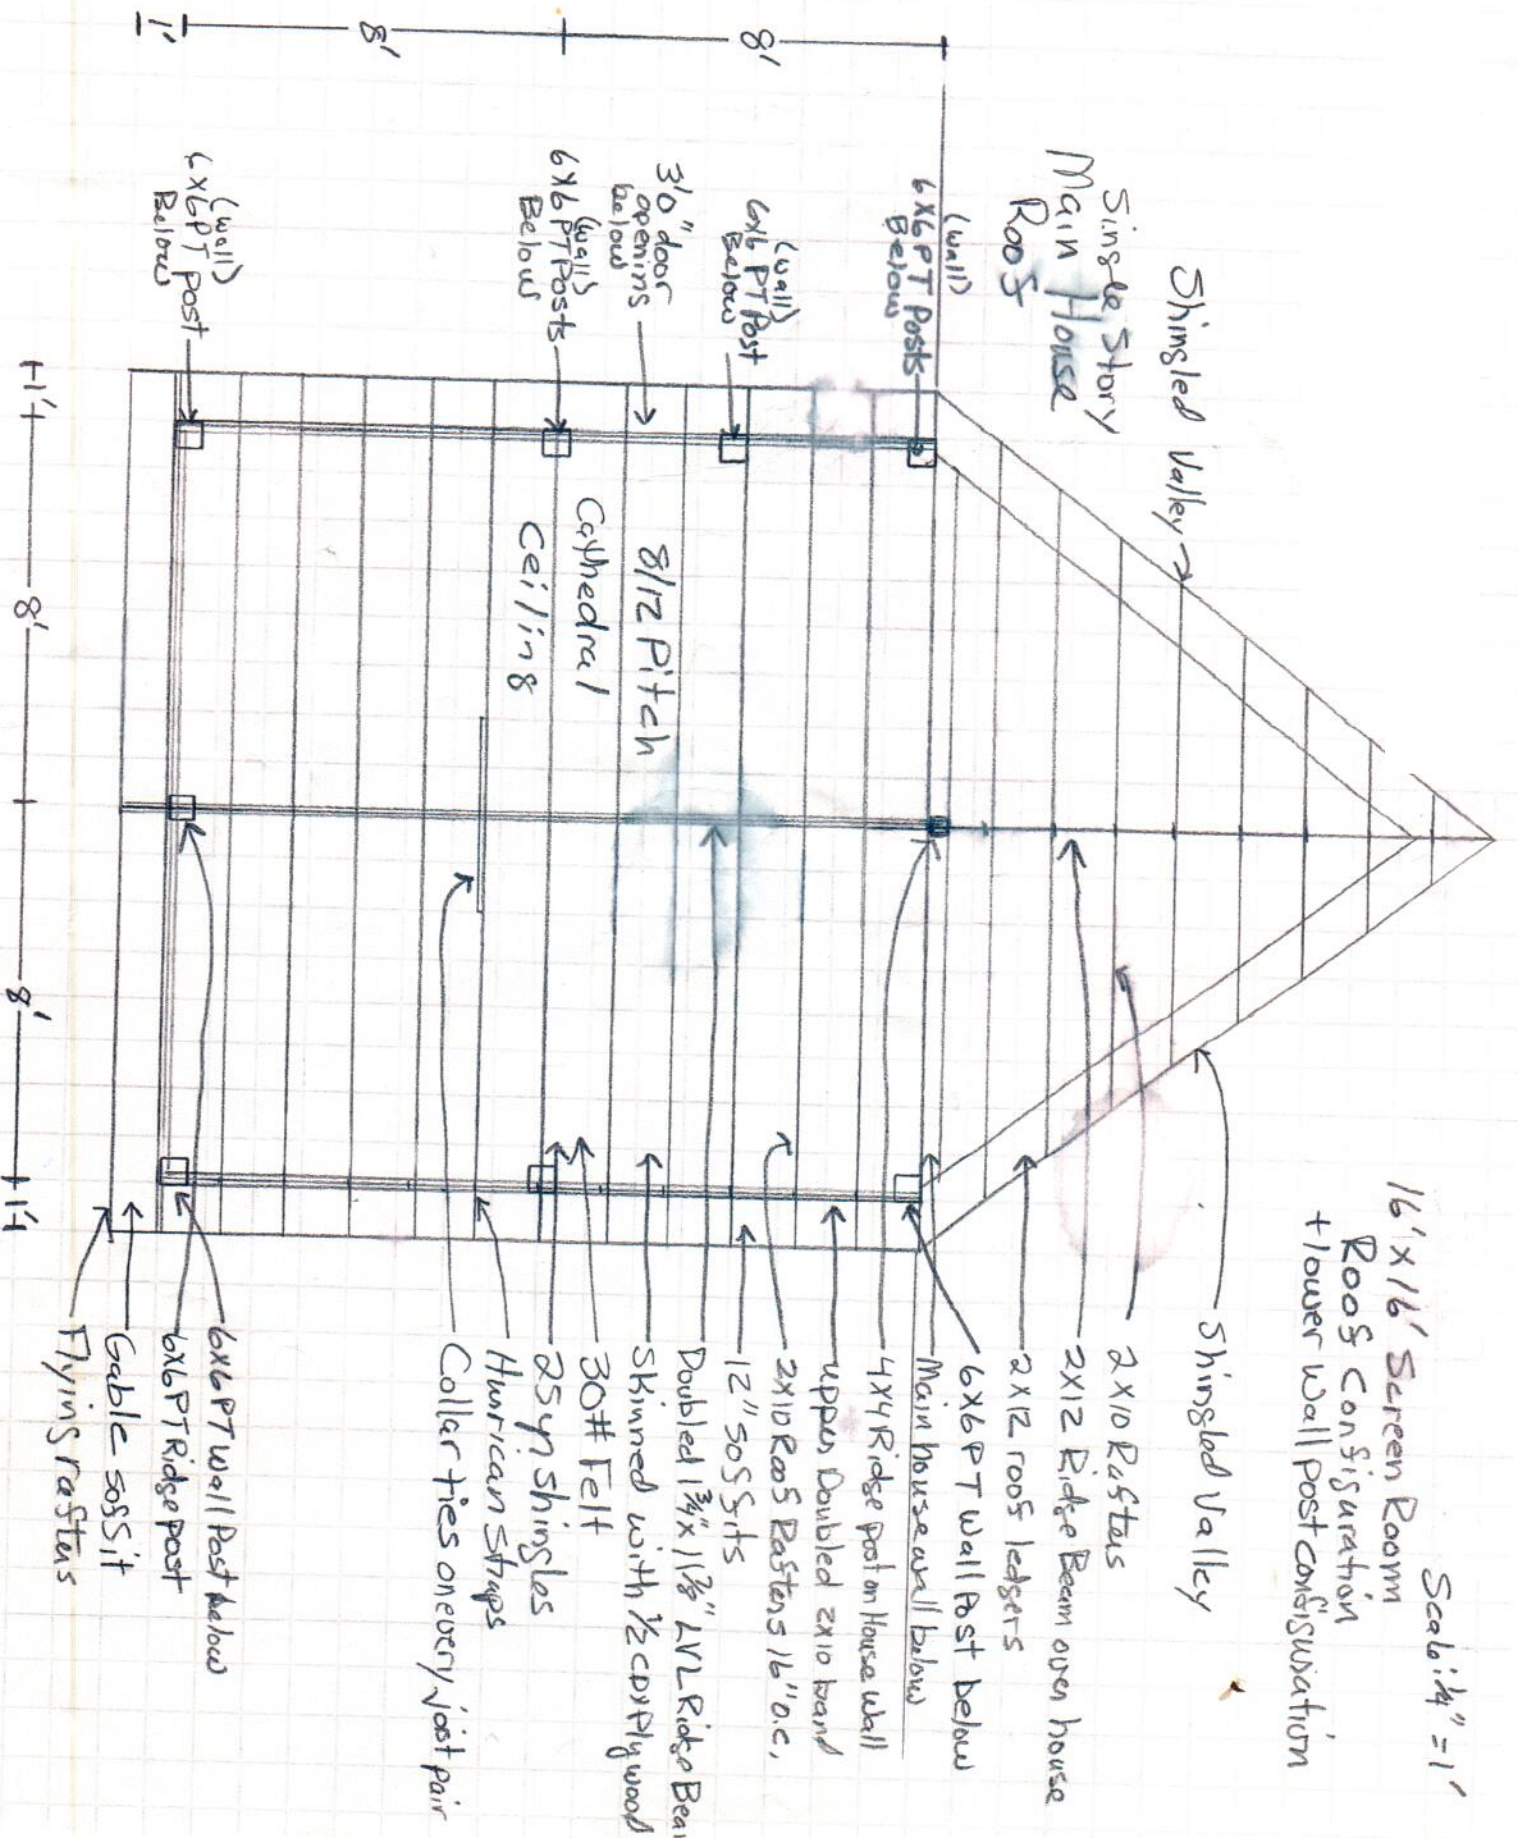 Scale: 1/4" = 1'
16' x 16' Screen Room
Roof Configuration
+ lower wall post configuration
Shingled Valley
2x10 Rafters
2x12 Ridge Beam over house
2x12 roof ledgers
6x6 PT Wall Post below
Main house wall below
4x4 Ridge post on House wall
upper Doubled 2x10 band
2x10 Roof Rafters 16" o.c.
12" soffits
Doubled 1 3/4" x 11 7/8" LVL Ridge Beam
Skinned with 1/2 CDX Plywood
30# Felt
25 yr shingles
Hurrican Straps
Collar ties on every joist pair
6x6 PT Wall Post below
6x6 PT Ridge post
Gable soffit
Flying rafters
Shingled Valley
Single Story
Main House
Roof
(wall)
6x6 PT Posts
Below
(wall)
6x6 PT Post
Below
3'0" door
opening
below
(wall)
6x6 PT Posts
Below
(wall)
6x6 PT Post
Below
8/12 Pitch
Cathedral
Ceiling
8'
8'
1'
1'
8'
8'
1'